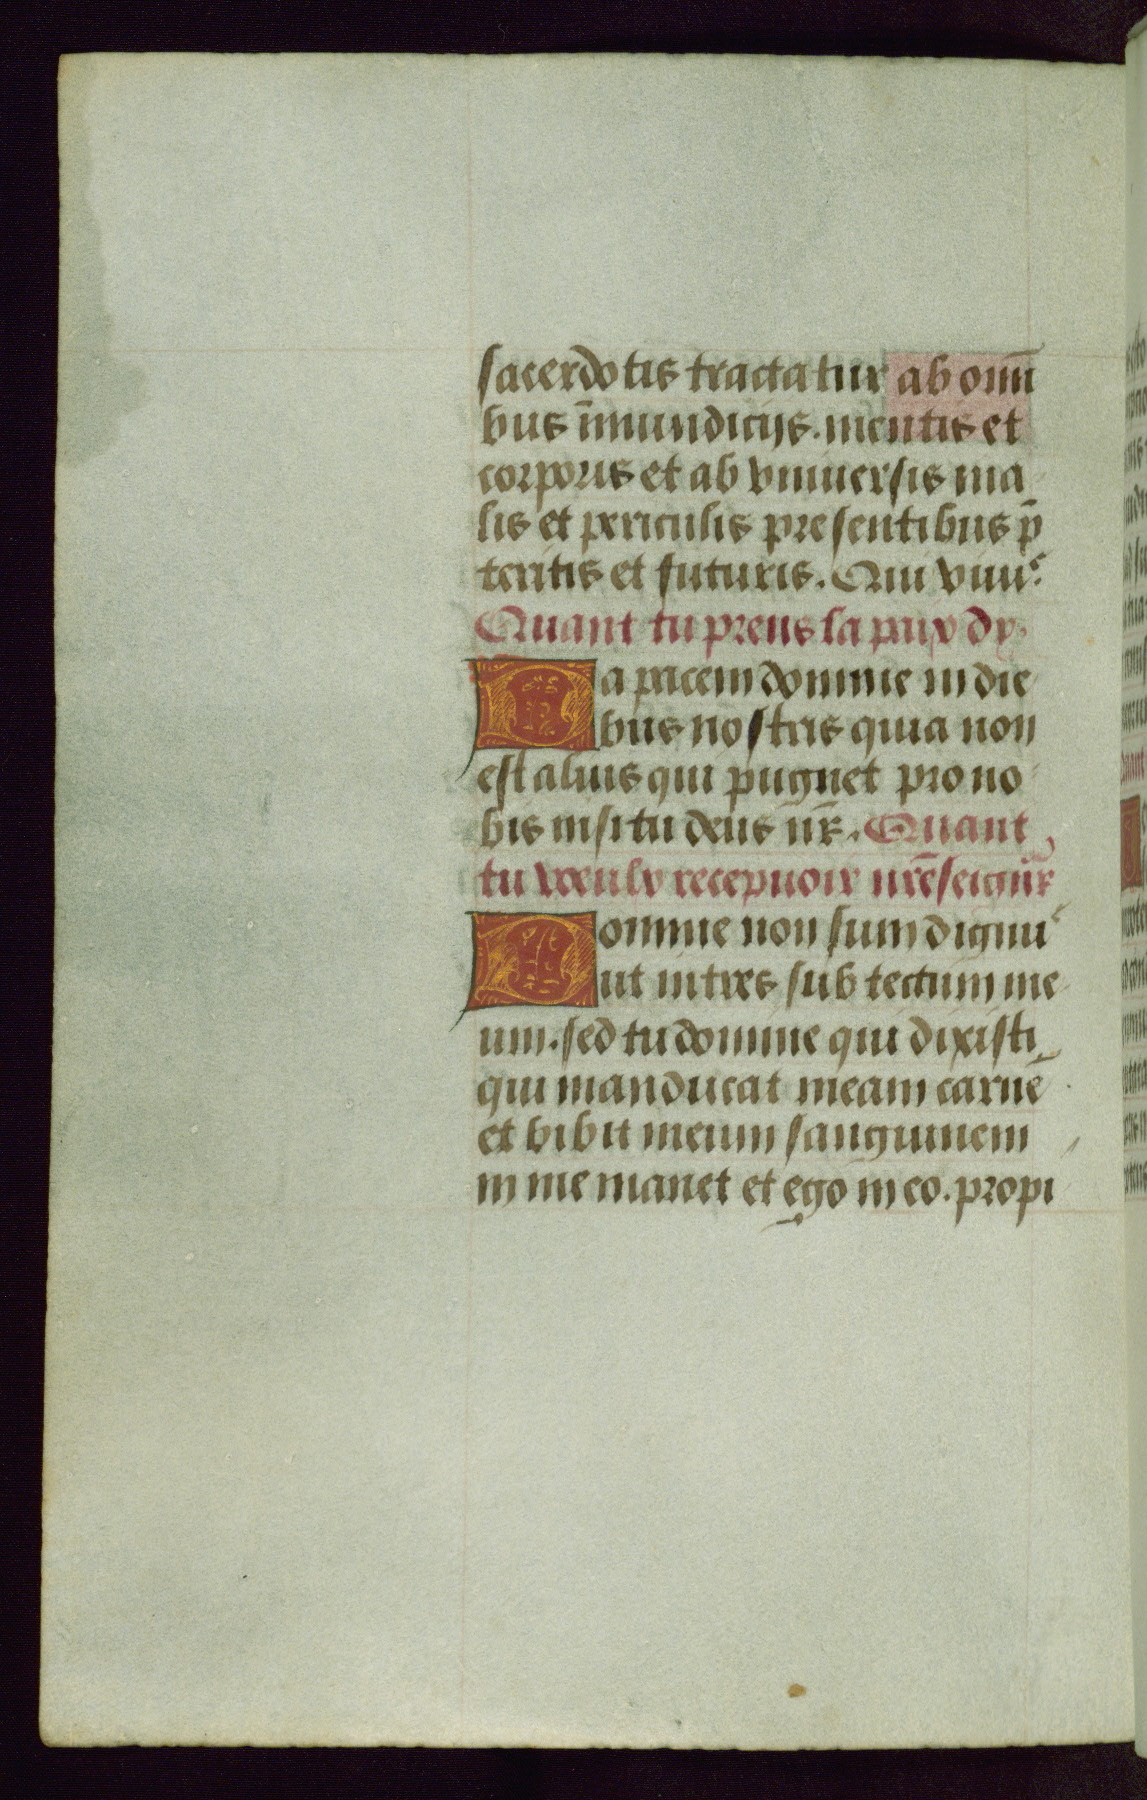 sacerdotis tractatur ab omī
bus īmundicijs. mentis et
corporis et ab vniuersis ma
lis et periculis presentibus p̄
teritis et futuris. Qui viuis
Quant tu prens la paix dy.
Da pacem domine in die
bus nostris quia non
est alius qui pugnet pro no
bis nisi tu deus nr̄. Quant
tu veulx recepuoir nr̄e seignr̄
Domine non sum dignus
ut intres sub tectum me
um. sed tu domine qui dixisti
qui manducat meam carnē
et bibit meum sanguinem
in me manet et ego in eo. propi